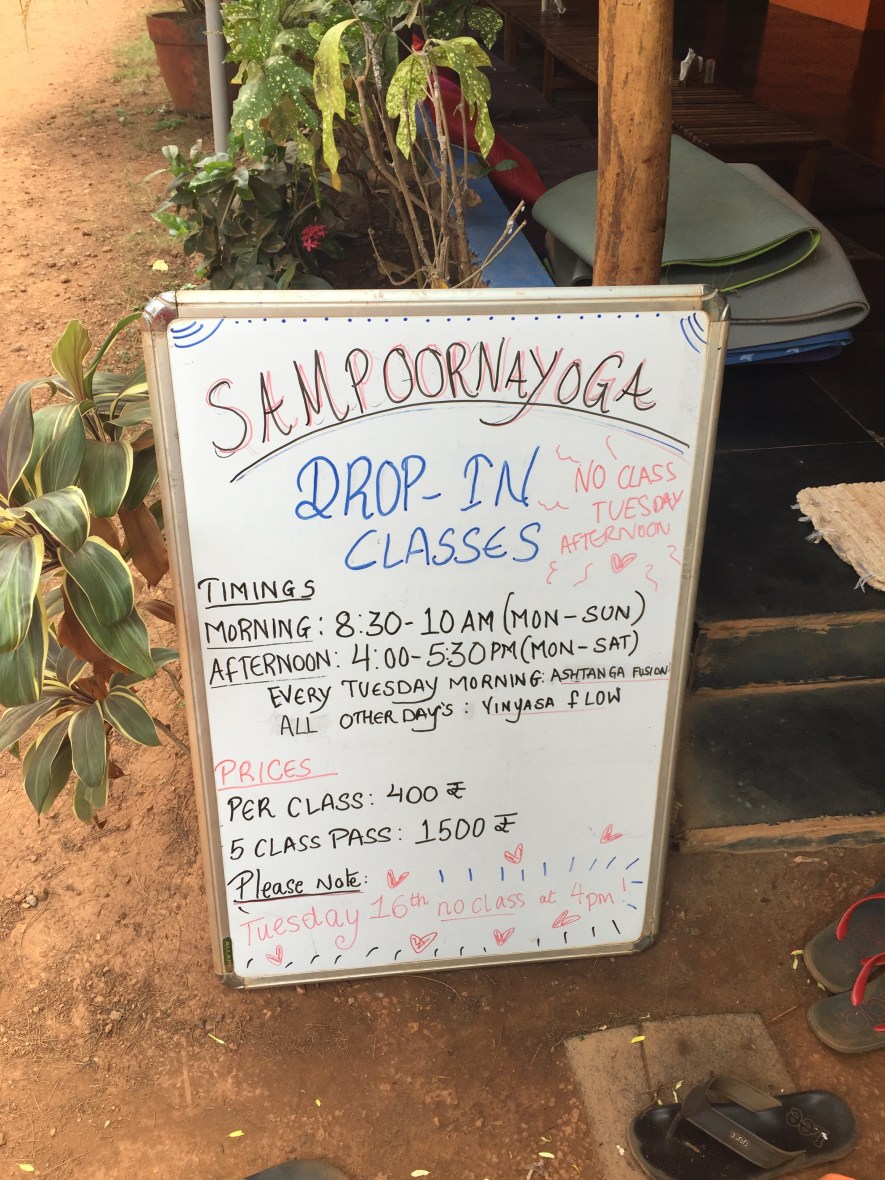 SAMPOORNAYOGA
DROP-IN
CLASSES
NO CLASS
TUESDAY
AFTERNOON
TIMINGS
MORNING: 8:30-10 AM (MON-SUN)
AFTERNOON: 4:00-5:30 PM (MON-SAT)
EVERY TUESDAY MORNING: ASHTANGA FUSION
ALL OTHER DAY'S: VINYASA fLOW
PRICES
PER CLASS: 400 ₹
5 CLASS PASS: 1500 ₹
Please Note:
Tuesday 16th no class at 4pm!